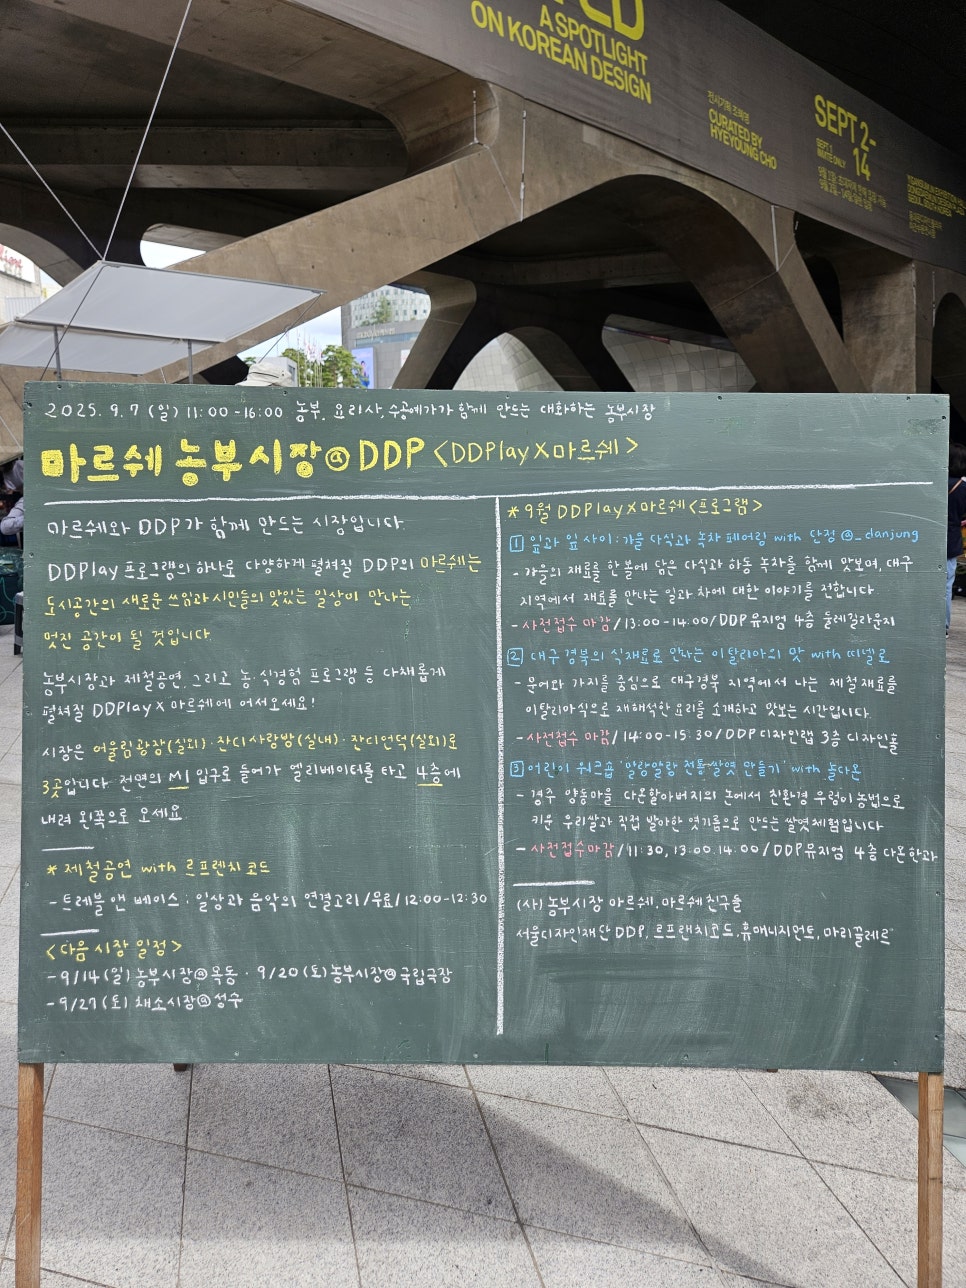 A SPOTLIGHT
ON KOREAN DESIGN
CURATED BY
HYEYOUNG CHO
SEPT 2-
14
2025. 9. 7 (일) 11:00 -16:00 농부, 요리사, 수공예가가 함께 만드는 대화하는 농부시장
마르쉐 농부시장@DDP <DDPlay X 마르쉐>
마르쉐와 DDP가 함께 만드는 시장입니다
DDPlay 프로그램의 하나로 다양하게 펼쳐질 DDP의 마르쉐는
도시공간의 새로운 쓰임과 시민들의 맛있는 일상이 만나는
멋진 공간이 될 것입니다.
농부시장과 제철공연, 그리고 농·식경험 프로그램 등 다채롭게
펼쳐질 DDPlay X 마르쉐에 어서오세요!
시장은 어울림광장(실외)·잔디사랑방(실내)·잔디언덕(실외)로
3곳입니다. 전면의 M1 입구로 들어가 엘리베이터를 타고 4층에
내려 왼쪽으로 오세요
* 제철공연 with 르프렌치코드
- 트레블 앤 베이스 : 일상과 음악의 연결고리/무료/12:00-12:30
<다음 시장 일정>
- 9/14 (일) 농부시장@목동 · 9/20 (토) 농부시장@국립극장
- 9/27 (토) 채소시장@성수
* 9월 DDPlay X 마르쉐 <프로그램>
1 잎과 잎 사이 : 가을 다식과 녹차 페어링 with 단정 @_danjung
- 가을의 재료를 한 볼에 담은 다식과 하동 녹차를 함께 맛보며, 대구
지역에서 재료를 만나는 일과 차에 대한 이야기를 전합니다
- 사전접수 마감/13:00-14:00/DDP뮤지엄 4층 둘레길라운지
2 대구 경북의 식재료로 만나는 이탈리아의 맛 with 띠넬로
- 문어와 가지를 중심으로 대구경북 지역에서 나는 제철재료를
이탈리아식으로 재해석한 요리를 소개하고 맛보는 시간입니다.
- 사전접수 마감/14:00-15:30/DDP디자인랩 3층 디자인홀
3 어린이 워크숍 '말랑말랑 전통쌀엿 만들기' with 놀다온
- 경주 양동마을 다온할아버지의 논에서 친환경 우렁이 농법으로
키운 우리쌀과 직접 발아한 엿기름으로 만드는 쌀엿체험입니다
- 사전접수마감/11:30, 13:00 14:00/DDP뮤지엄 4층 다온한과
(사)농부시장 마르쉐, 마르쉐친구들
서울디자인재단DDP, 르프랜치코드, 휴매니지먼트, 마리끌레르